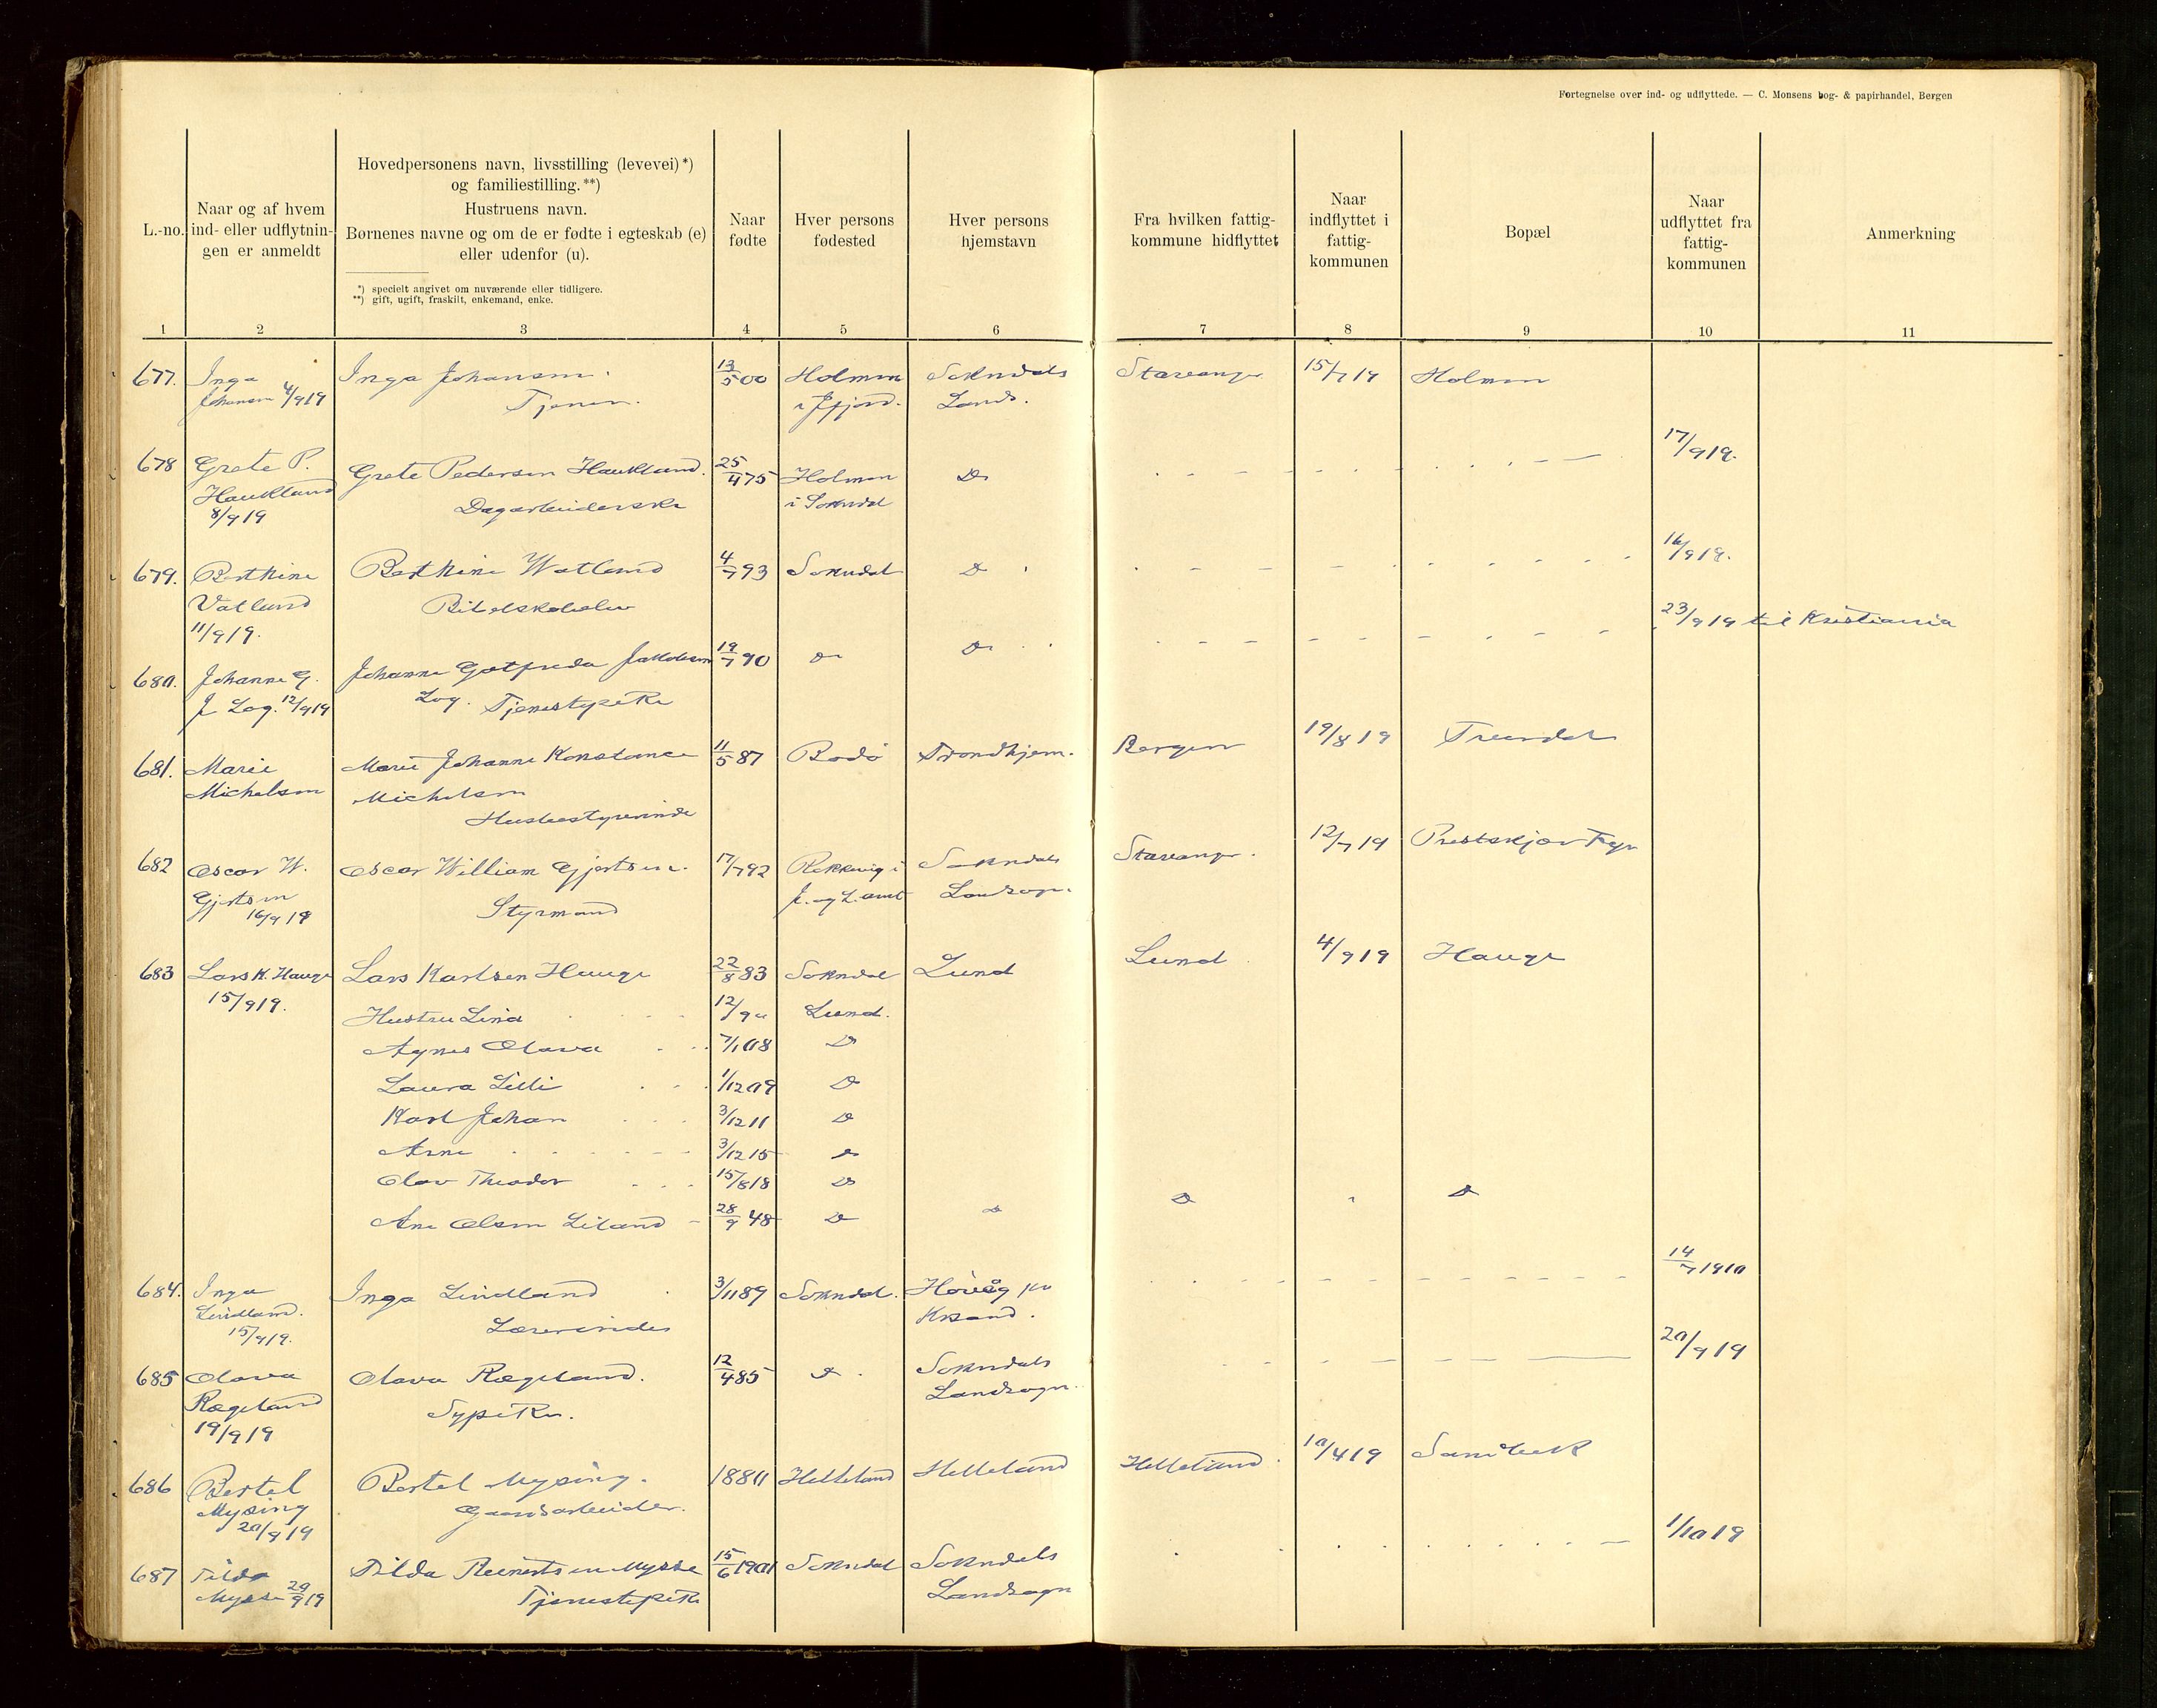 Fortegnelse over ind- og udflyttede. — C. Monsens bog- & papirhandel, Bergen
L.-no.
Naar og af hvem
ind- eller udflytnin-
gen er anmeldt
Hovedpersonens navn, livsstilling (levevei)*)
og familiestilling.**)
Hustruens navn.
Børnenes navne og om de er fødte i egteskab (e)
eller udenfor (u).
*) specielt angivet om nuværende eller tidligere.
**) gift, ugift, fraskilt, enkemand, enke.
Naar
fødte
Hver persons
fødested
Hver persons
hjemstavn
Fra hvilken fattig-
kommune hidflyttet
Naar
indflyttet i
fattig-
kommunen
Bopæl
Naar
udflyttet fra
fattig-
kommunen
Anmerkning
1 2 3 4 5 6 7 8 9 10 11
677. Inga Inga Johansen 13/5 00 Holmen Sokndals Stavanger 15/7 19 Holmen
Johansen 4/9 19 Tjener. i Jøfjord. Lands.
678 Grete P. Grete Pedersen Haukland. 25/4 75 Holmen Do 17/9 19.
Haukland Dagarbeiderske i Sokndal
8/9 19
679. Berthine Berthine Watland 4/7 93 Sokndal Do 16/9 19.
Vatland Bibelskoleelev
11/9 19.
680. Johanne G. Johanne Gotfreda Jakobsen 19/7 90 Do Do 23/9 19 til Kristiania
J Log. 12/9 19 Log. Tjenestepike
681. Marie Marie Johanne Konstance 11/5 87 Bodö Trondhjem. Bergen 19/8 19
Michelsen Michelsen
Husbestyrerinde
682 Oscar W. Oscar William Gjertsen. 17/7 92 Rekkevig i Sokndals Stavanger. 12/7 19 Prestskjær Fyr
Gjertsen Styrmand J. og L. amt Landsogn.
16/9 19
683 Lars K. Hauge Lars Karlsen Hauge 22/8 83 Sokndal Lund Lund 4/9 19 Hauge
15/9 19. Hustru Lina Lund.
Agnes Olava 7/1 08 Do
Laura Lilli 1/12 09 Do
Karl Johan 3/12 11 Do
Arne 3/12 15 Do
Olav Theodor 15/8 18 Do
Ane Olsen Liland 28/9 48 Do Do Do Do
684. Inga Inga Lindland 3/11 89 Sokndal. Høvåg pr 14/7 1910
Lindland. Lærerinde Krsand.
15/9 19.
685 Olava Olava Rægeland. 12/4 85 Do Sokndals 20/9 19
Rægeland Sypike. Landsogn.
19/9 19
686 Bertel Bertel Mysing. 1880 Helleland Helleland Helleland. 10/4 19 Sandbek
Mysing Gaardsarbeider.
20/9 19
687 Tilda Tilda Reinertsen Mysse 15/6 1901 Sokndal Sokndals 1/10 19
Mysse 29/9 19 Tjenestepike Landsogn